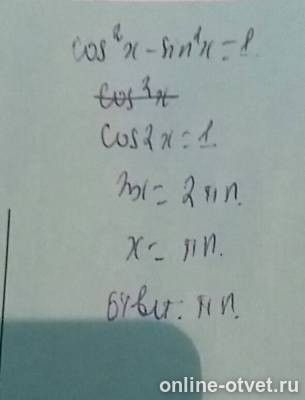 cos²x - sin²x = 1
cos²x
cos2x = 1
2x = 2πn.
x = πn.
Ответ: πn.
online-otvet.ru